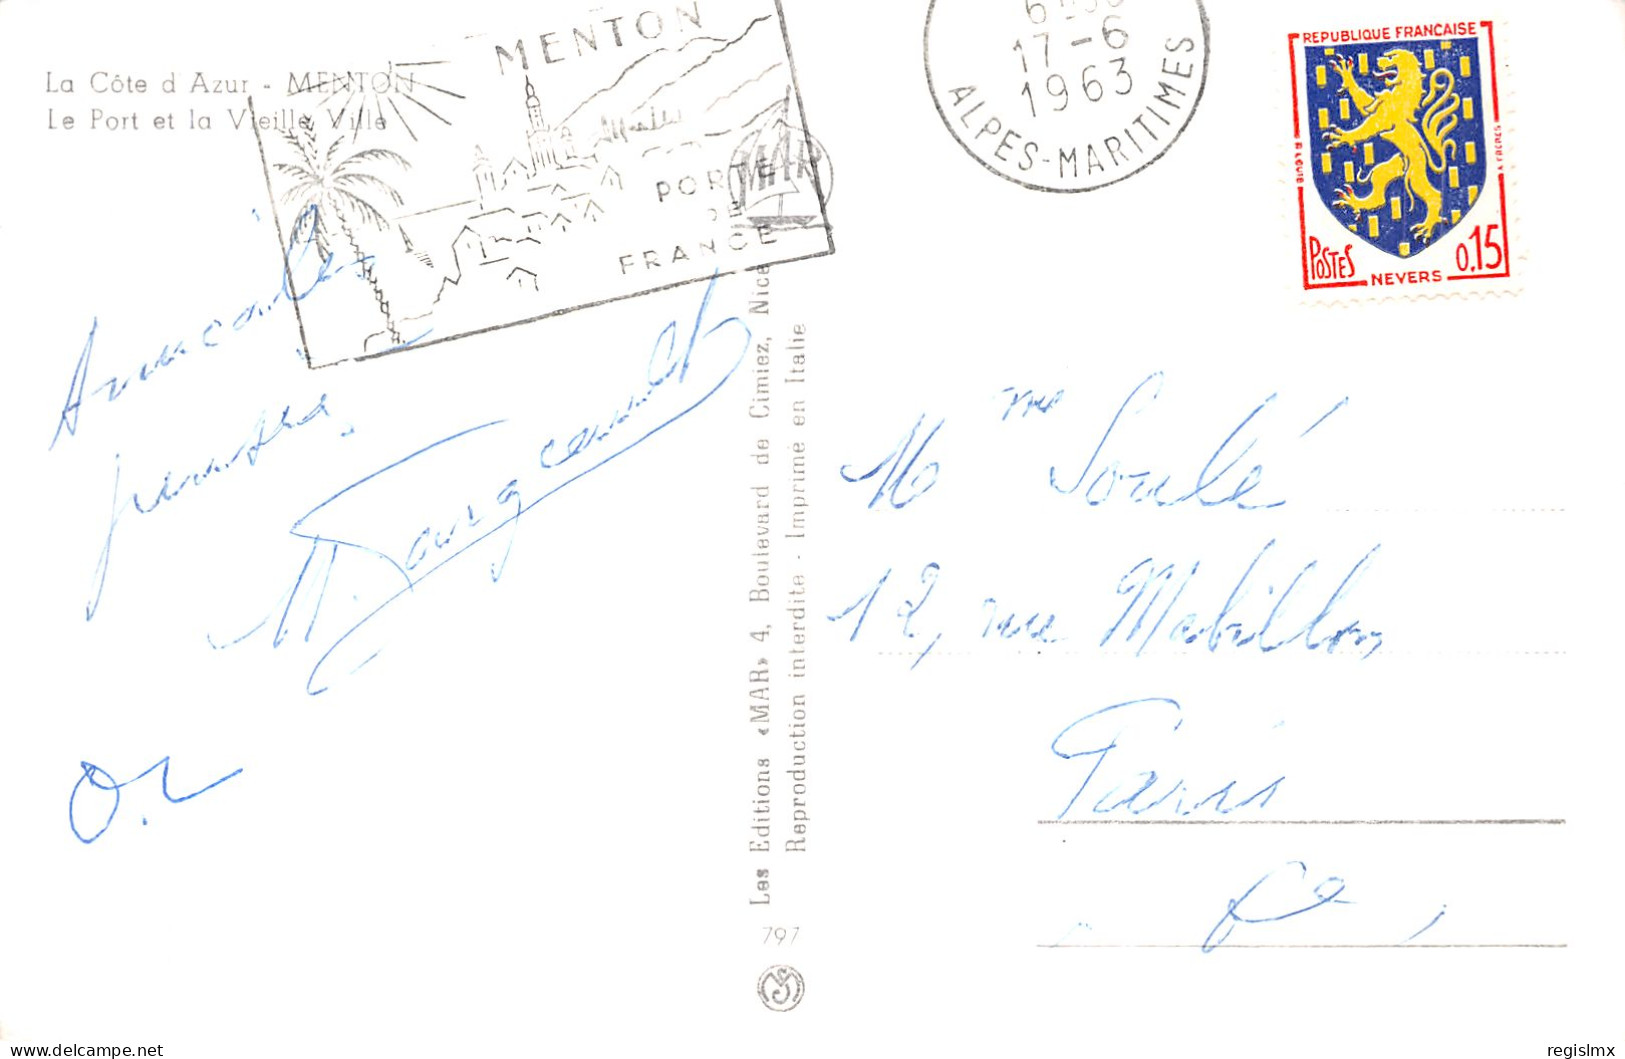 La Côte d'Azur - MENTON
Le Port et la Vieille Ville
MENTON
PORTE
DE
FRANCE
MAR
17-6
1963
ALPES-MARITIMES
REPUBLIQUE FRANCAISE
POSTES
NEVERS
0,15
Amicales
pensées,
O.L
Les Editions «MAR» 4, Boulevard de Cimiez, Nice
Reproduction interdite - Imprimé en Italie
797
Mme Soulé
12, rue Mabillon,
Paris
delcampe.net
regislmx